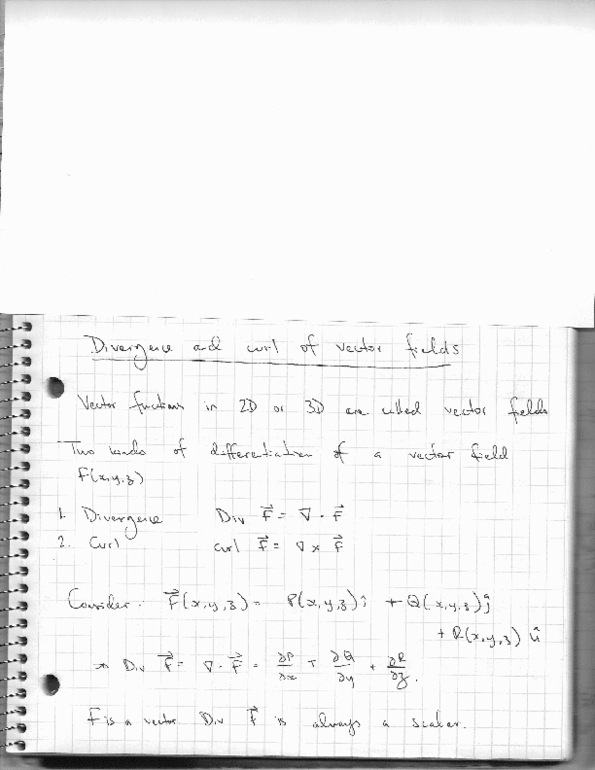 Divergence and curl of vector fields
Vector functions in 2D or 3D are called vector fields
Two kinds of differentiation of a vector field
F(x,y,z)
1. Divergence Div F⃗ = ∇ · F⃗
2. Curl curl F⃗ = ∇ × F⃗
Consider: F⃗(x,y,z) = P(x,y,z) î + Q(x,y,z) ĵ
+ R(x,y,z) k̂
⇒ Div F⃗ = ∇ · F⃗ = ∂P/∂x + ∂Q/∂y + ∂R/∂z.
F is a vector. Div F⃗ is always a scalar.